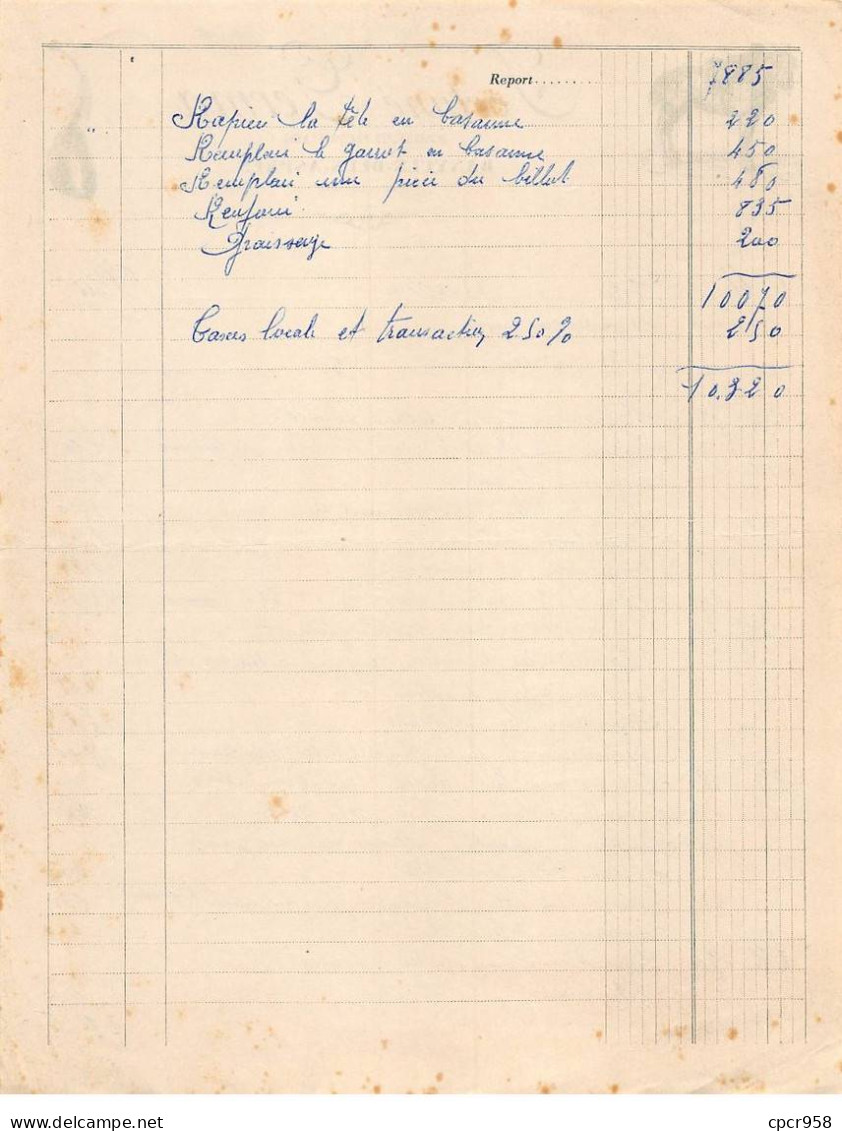 Report......... 7885
Rapiecé la tête en basanne 220
Remplacé le garrot en basanne 450
Remplacé une pièce du billot 480
Renforcé 835
Graissage 200
10070
Taxes locale et transaction 2.50% 250
10.320
delcampe.net
cpcr958